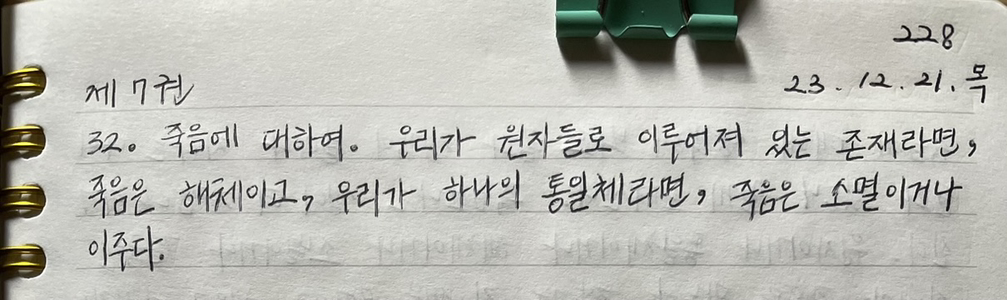 228
제 7권
23. 12. 21. 목
32. 죽음에 대하여. 우리가 원자들로 이루어져 있는 존재라면,
죽음은 해체이고, 우리가 하나의 통일체라면, 죽음은 소멸이거나
이주다.